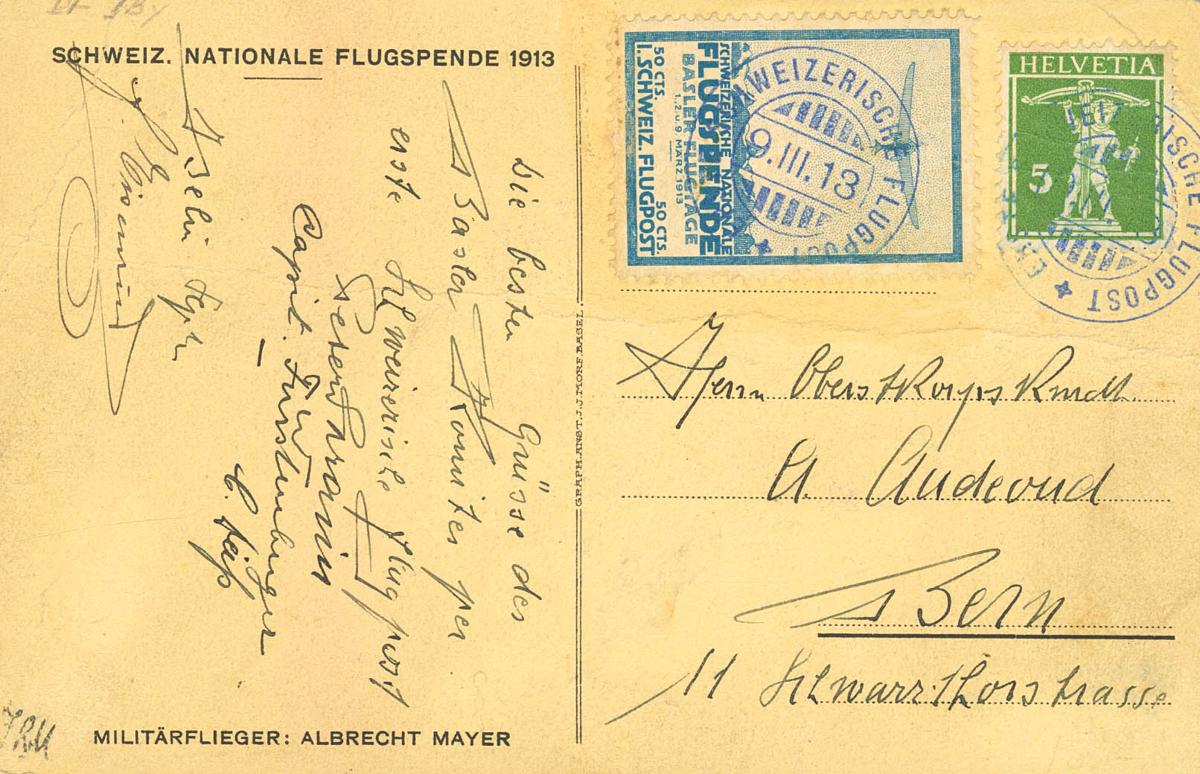 SCHWEIZ. NATIONALE FLUGSPENDE 1913
Die besten Grüsse des
Basler Komites per
erste Schweizerische Flugpost
Peter Sarasin
Capit. Fürstenberger
MILITÄRFLIEGER: ALBRECHT MAYER
GRAPH. ANST. J. J. MORF, BASEL.
SCHWEIZERISCHE NATIONALE
FLUGSPENDE
BASLER FLUGTAGE
1., 2. U. 9. MÄRZ 1913
50 CTS. 50 CTS.
I. SCHWEIZ. FLUGPOST
WEIZERISCHE FLUGPOST
9.III.13
HELVETIA
5
RISCHE FLUGPOST
Herrn Oberstkorpskmdt.
A. Audeoud
Bern
11 Schwarzthorstrasse